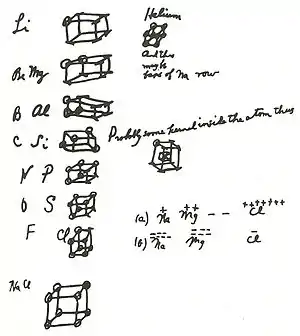 Li
Helium
And this
might
base of Na row
Be Mg
B Al
C Si
Probably some kernel inside the atom thus
N P
O S
(a) + Na ++ Mg - - +++++++ Cl
F Cl
(b) Na Mg - Cl
Na Cl